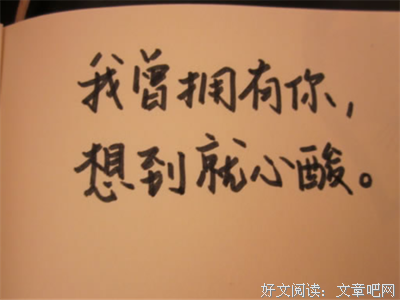 我曾拥有你，
想到就心酸。
好文阅读：文章吧网